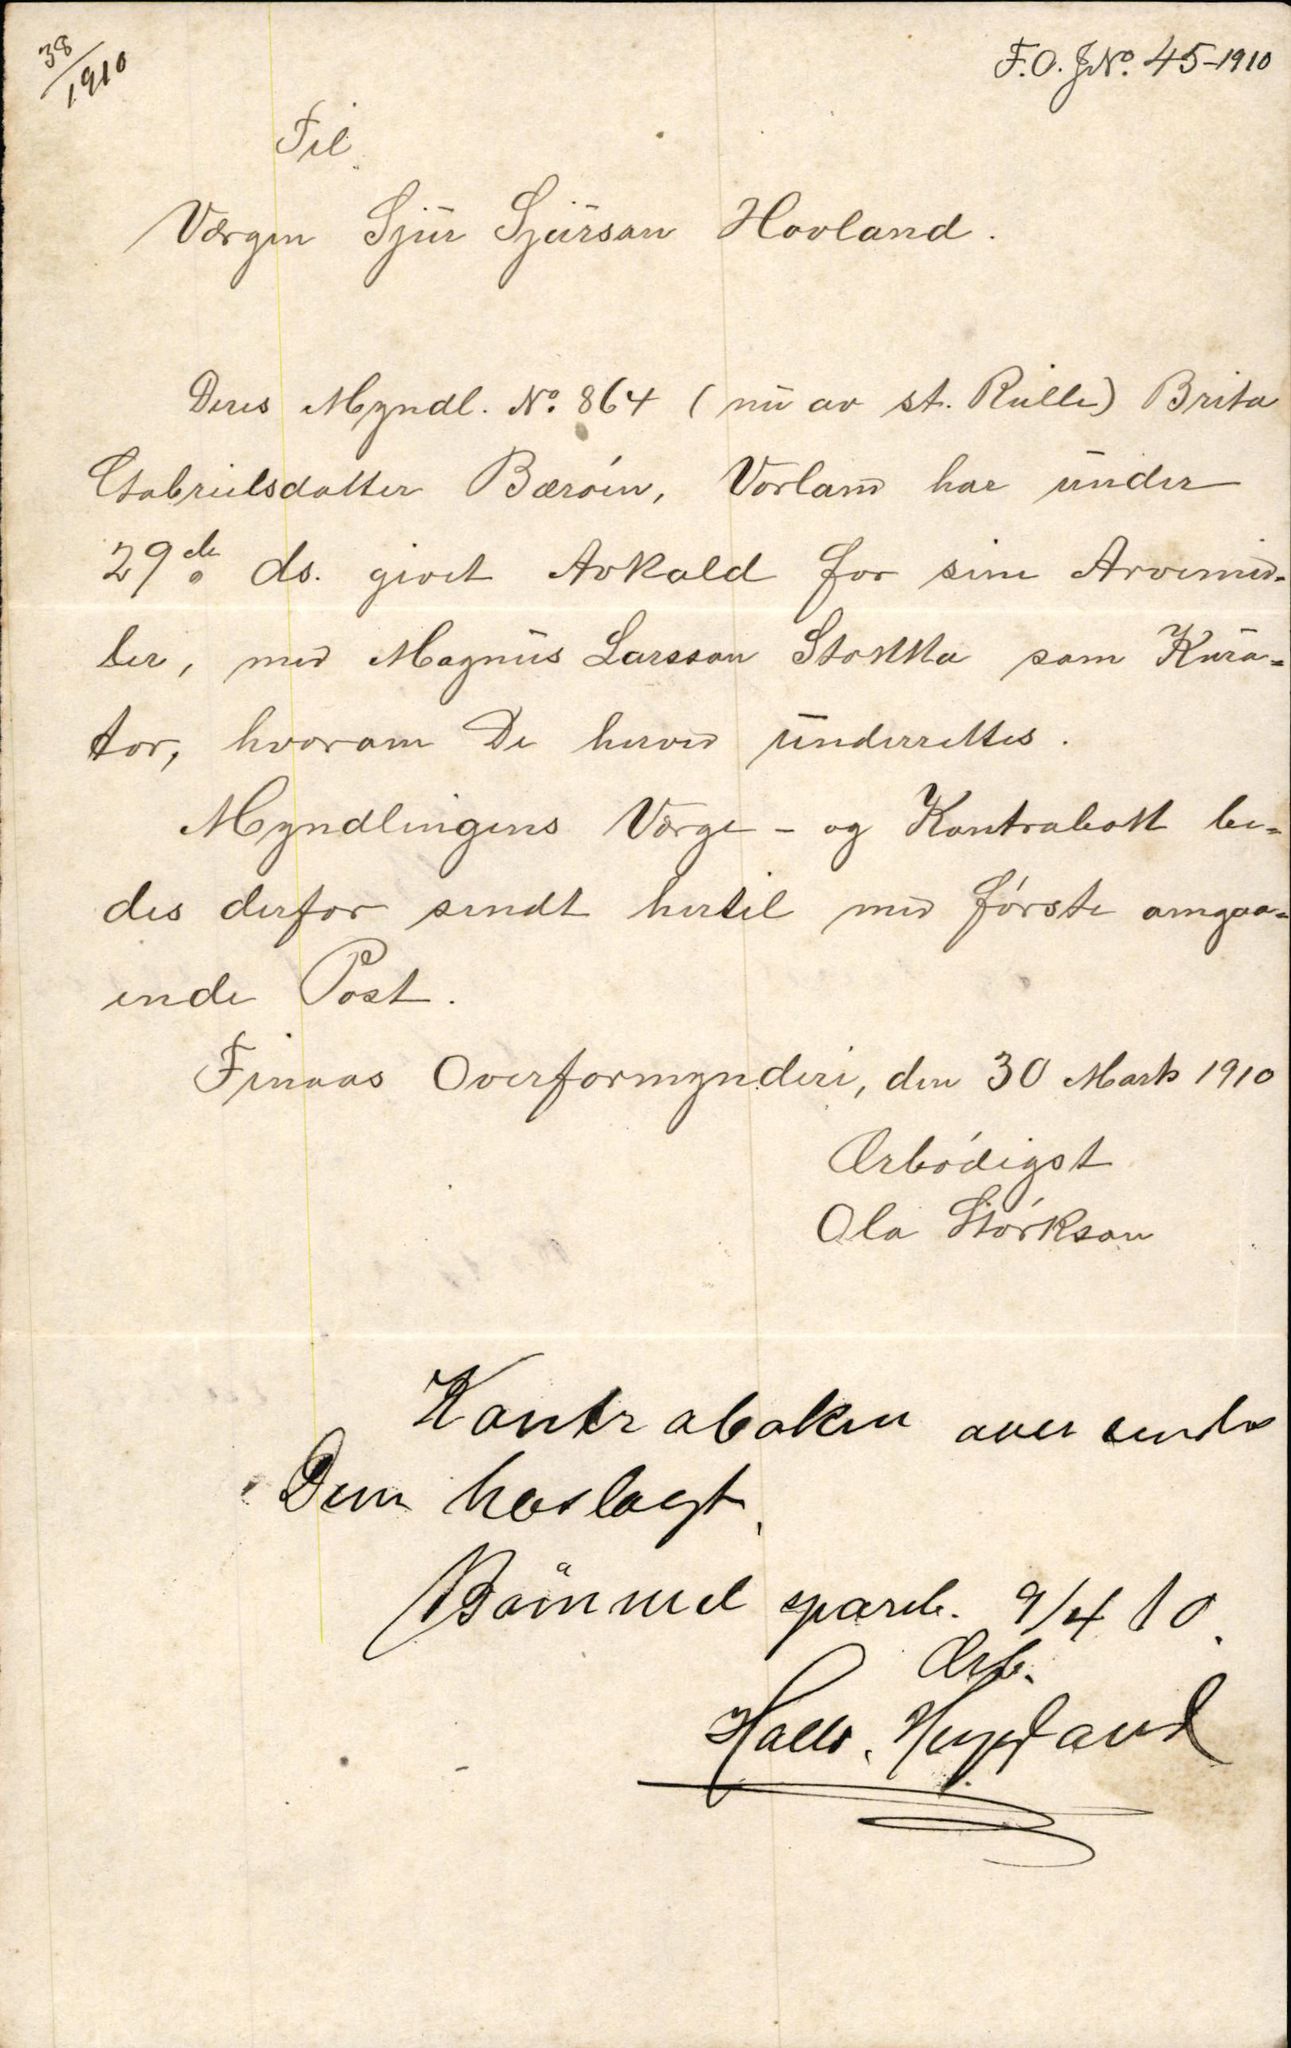 38/1910
F.O. J.No. 45-1910
Til
Værgen Sjur Sjursson Hovland.
Deres Myndl. No. 864 (nu av st. Rulle) Brita
Gabrielsdatter Bærøen, Vorland har under
29de ds. givet Avkald for sine Arvemid-
ler, med Magnus Larsson Stokka som Kura-
tor, hvorom De herved underrettes.
Myndlingens Værge- og Kontrabok be-
des derfor sendt hertil med første omgaa-
ende Post.
Finaas Overformynderi, den 30 Marts 1910
Ærbødigst
Ola Størkson
Kontraboken oversendes
Dem hoslagt.
Bömmel spareb. 9/4 10.
Ærb.